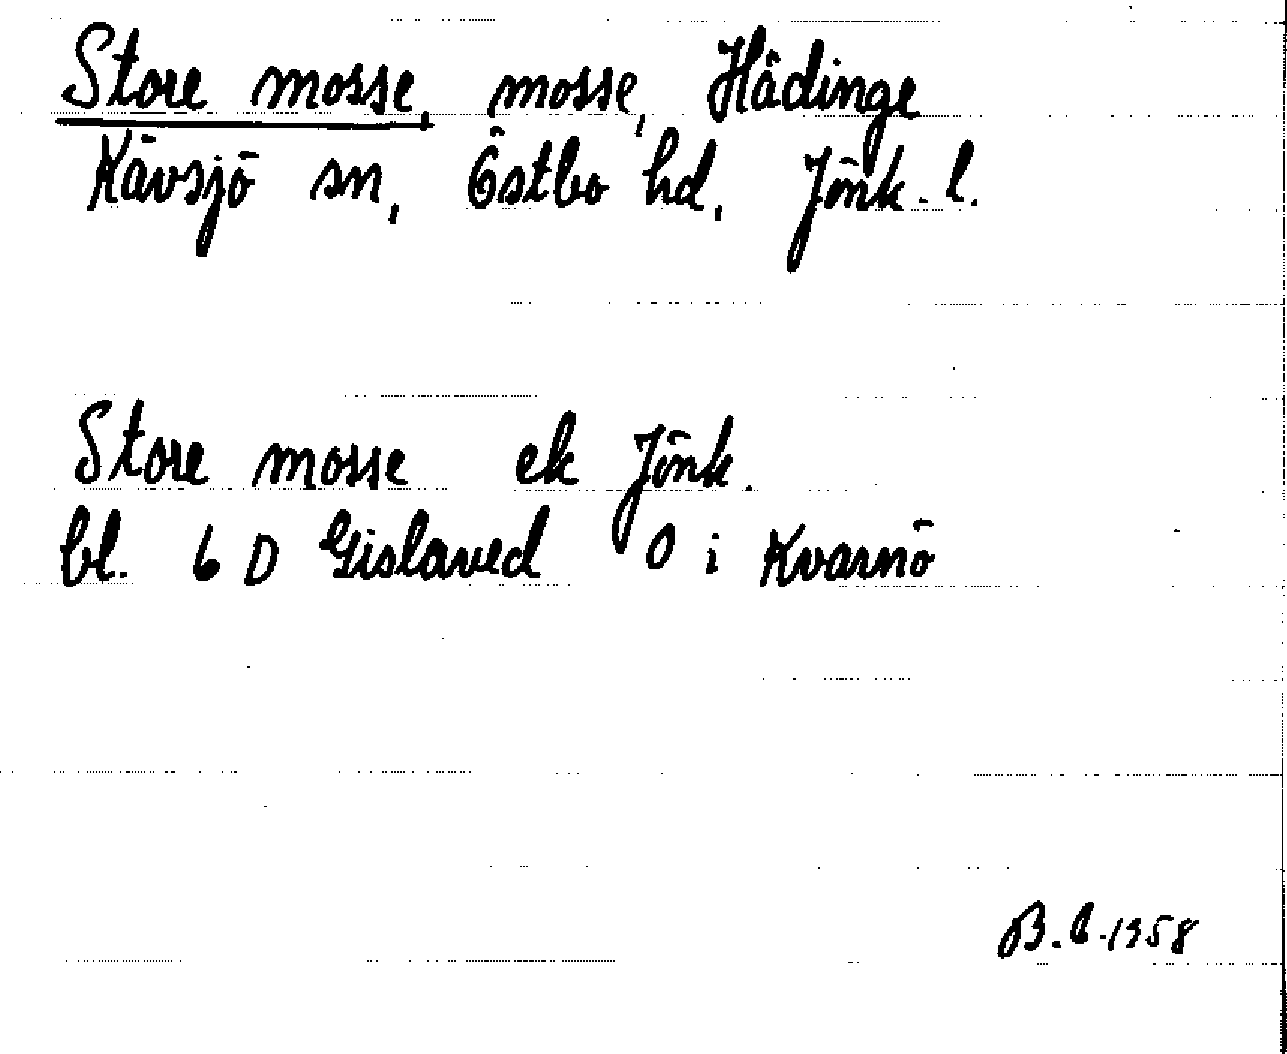 Store mosse, mosse, Hädinge
Kävsjö sn, Östbo hd, Jönk. l.
Store mosse ek Jönk.
bl. 6 D Gislaved O i Kvarnö
B. 1958